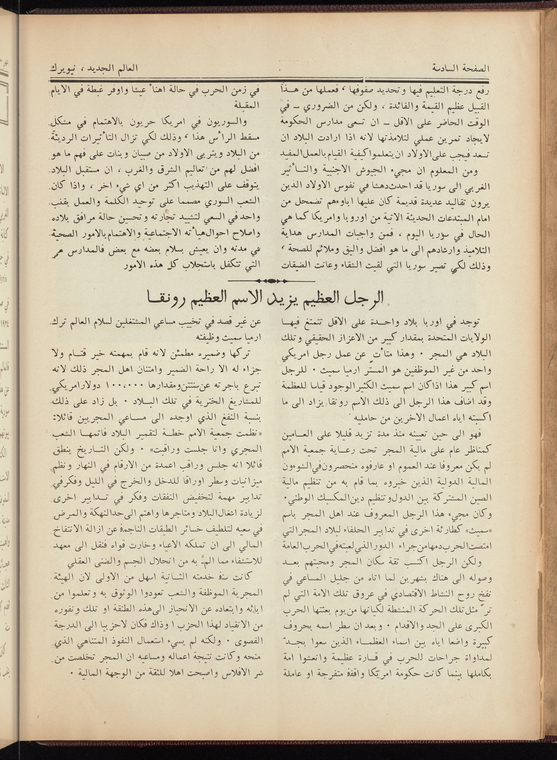 الصفحة السادسة
العالم الجديد ، نيويرك
رفع درجة التعليم فيها وتحديد صفوفها ، فعملها من هـذا
القبيل عظيم القيمة والفائدة ، ولكن من الضروري ـ في
الوقت الحاضر على الاقل ـ ان تسعى مدارس الحكومة
لايجاد تمرين عملي لتلامذتها لانه اذا ارادت البلاد ان
تسعد فيجب على الاولاد ان يتعلموا كيفية القيام بالعمل المفيد
ومن المعلوم ان مجيء الجيوش الاجنبية والتـأثير
الغربي الى سوريا قد احدث دهشا في نفوس الاولاد الذين
يرون تقاليد عديدة قديمة كان عليها اباؤهم تضمحل من
امام المبتدعات الحديثة الاتية من اوروبا وامريكا كما هي
الحال في سوريا اليوم ، فمن واجبات المدارس هداية
التلاميذ وارشادهم الى ما هو افضل واليق وملائم للصحة ،
وذلك لكي تصير سوريا التي لقيت الشقاء وعانت الضيقات
في زمن الحرب في حالة اهنأ عيشا واوفر غبطة في الايام
المقبلة
والسوريون في امريكا حريون بالاهتمام في مشكل
مسقط الرأس هذا ، وذلك لكي تزال التأثيرات الرديئة
من البلاد ويتربى الاولاد من صبيان وبنات على فهم ما هو
افضل لهم من تعاليم الشرق والغرب ، ان مستقبل البلاد
يتوقف على التهذيب اكثر من اي شيء اخر ، واذا كان
الشعب السوري مصمما على توحيد الكلمة والعمل بقلب
واحد في السعي لتشييد تجارته وتحسين حالة مرافق بلاده
واصلاح احوال هيأته الاجتماعية والاهتمام بالامور الصحية
في مدنه وان يعيش بسلام بعضه مع بعض فالمدارس هي
التي تتكفل باستجلاب كل هذه الامور
الرجل العظيم يزيد الاسم العظيم رونقـا
توجد في اوربا بلاد واحـدة على الاقل تتمتع فيهـا
الولايات المتحدة بمقدار كبير من الاعزاز الحقيقي وتلك
البلاد هي المجر ٠ وهذا متأت عن عمل رجل امريكي
واحد من غير الموظفين هو المستر ارميا سميث ٠ للرجل
اسم كبير هذا اذا كان اسم سميث الكثير الوجود قياسا للعظمة
وقد اضاف هذا الرجل الى ذلك الاسم رونقا يزاد الى ما
اكسبته اياه اعمال الاخرين من حامليه
فهو الى حين تعيينه منذ مدة تزيد قليلا على العـامين
كمناظر عام على مالية المجر تحت رعـاية جمعية الامم
لم يكن معروفا عند العموم او عارفوه منحصرون في الشؤون
المالية الدولية الذين خبروه بما قام به من تنظيم مالية
الصين المشتركة بين الدول وتنظيم دين المكسيك الوطني ٠
وكان مجيء هذا الرجل المعروف عند اهل المجر باسم
«سميث» كطارئة اخرى في تدابير الحلفاء لبلاد المجر التي
امتصت الحرب دمها من جراء الدور الذي لعبته في الحرب العامة
ولكن الرجل اكتسب ثقة سكان المجر ومحبتهم بعـد
وصوله الى هناك بشهرين لما اتاه من جليل المساعي في
نفخ روح النشاط الاقتصادي في عروق تلك الامة التي لم
تر مثل تلك الحركة المنشطة لكيانها من يوم بعثتها الحرب
الكبرى على الجد والاقدام ٠ وبعد ان سطر اسمه بحروف
كبيرة واضعا اياه بين اسماء العظمـاء الذين سعوا بجـد
لمداواة جراحات للحرب في قـارة عظيمة وانعشوا امة
بكاملها بينما كانت حكومة امريكا واقفة متفرجة او عاملة
عن غير قصد في تخييب مساعي المشتغلين لسلام العالم ترك
ارميا سميث وظيفته
تركها وضميره مطمئن لانه قام بمهمته خير قيـام ولا
جزاء له الا راحة الضمير وامتنان اهل المجر ذلك لانه
تبرع باجرته عن سنتين ومقدارها ١٠٠٬٠٠٠ دولار امريكي
للمشاريع الخيرية في تلك البـلاد ٠ بل زاد على ذلك
بنسبة النفع الذي اوجده الى مساعي المجريين قائلا:
«نظمت جمعية الامم خطـة لتعمير البلاد فاتمهـا الشعب
المجري وانا جلست وراقبت» ٠ ولكن التـاريخ ينطق
قائلا انه جلس وراقب اعمدة من الارقام في النهار ونظم
ميزانيات وسطر اوراقا للدخل والخرج في الليل وفكر في
تدابير مهمة لتخفيض النفقات وفكر في تـدابير اخرى
لزيادة اشغال البلاد ومتاجرها واهتم الى حد النهكة والمرض
في سعيه لتلطيف خسائر الطبقات الناجمة عن ازالة الانتفاخ
المالي الى ان تملكه الاعياء وخارت قواه فنقل الى معهد
للاستشفاء مما الم به من انحلال الجسم والضنى العقلي
كانت سنو خدمته الثـانية اسهل من الاولى لان الهيئة
المجرية الموظفة والشعب تعودوا الوثوق به وتعلموا من
ابائه وابتعاده عن الانحياز الى هذه الطبقة او تلك ونفوره
من الانقياد لهذا الحزب او ذاك فكان لاحزبيا الى الدرجة
القصوى ٠ ولكنه لم يسيء استعمال النفوذ المتناهي الذي
منحه وكانت نتيجة اعماله ومساعيه ان المجر تخلصت من
شر الافلاس واصبحت اهلا للثقة من الوجهة المالية ٠